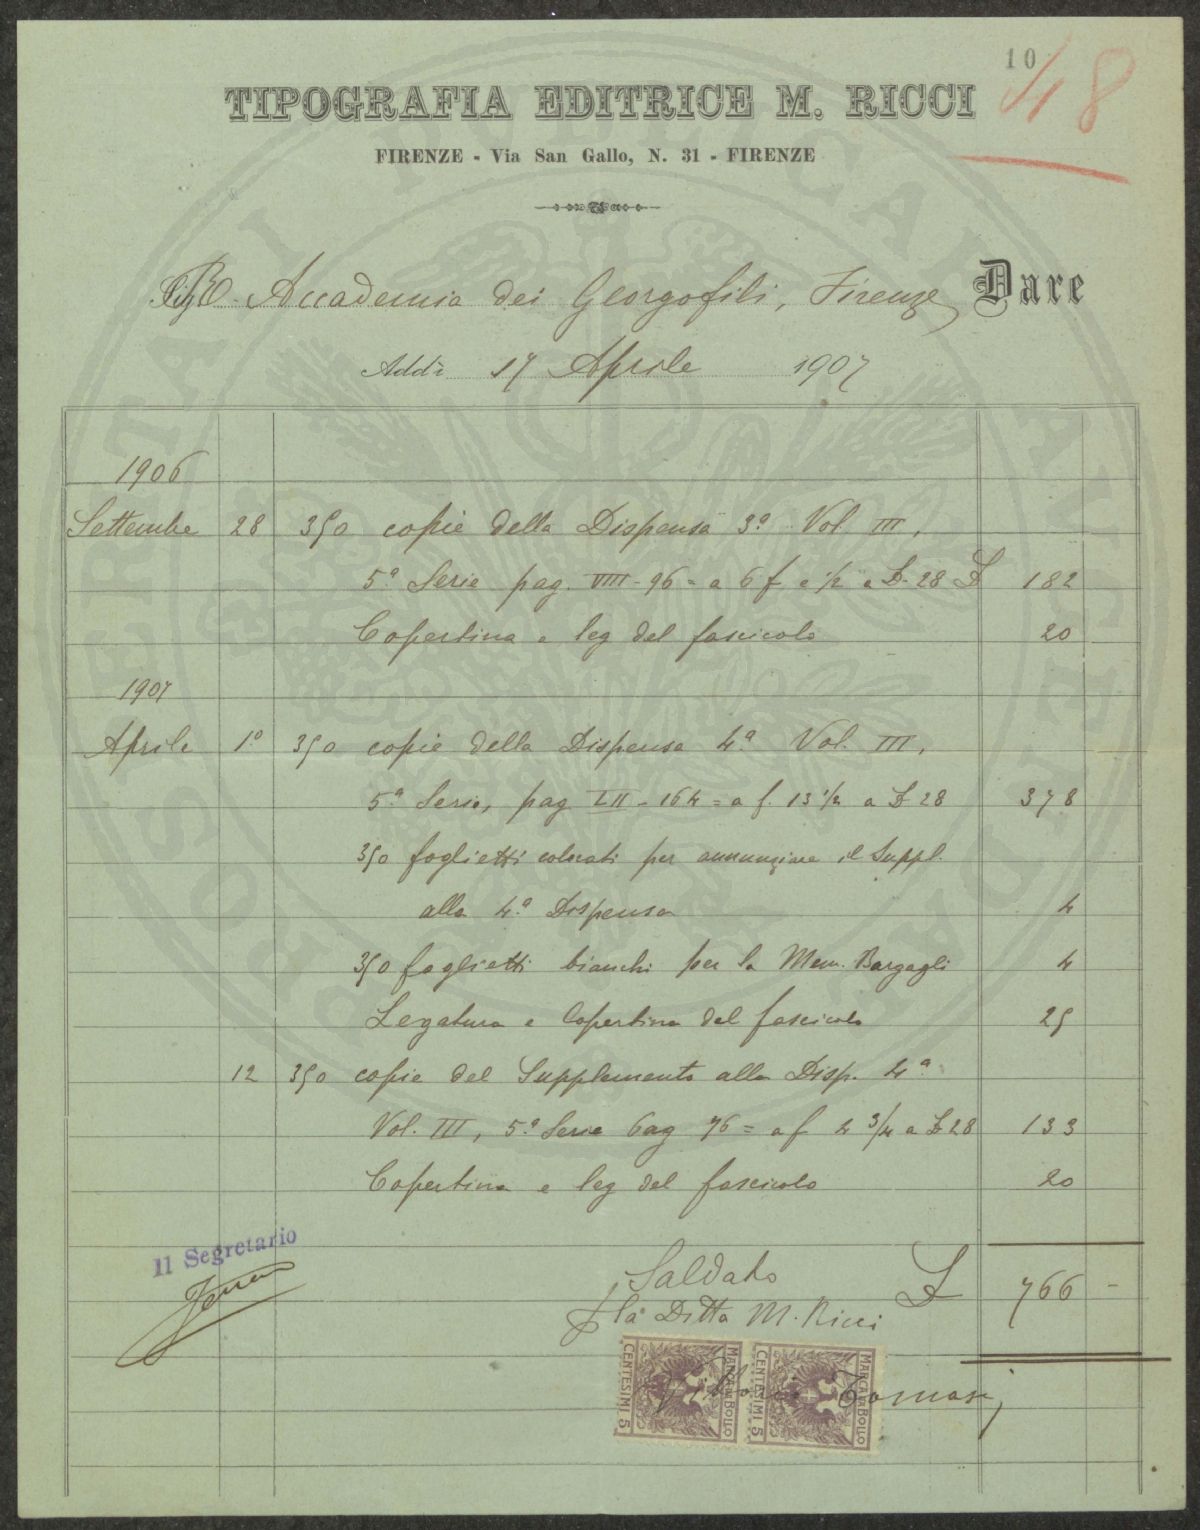 10
48
TIPOGRAFIA EDITRICE M. RICCI
FIRENZE - Via San Gallo, N. 31 - FIRENZE
R. Accademia dei Georgofili, Firenze Dare
Addì 17 Aprile 1907
1906
Settembre 28 350 copie della Dispensa 3ª Vol. III,
5ª Serie pag. VIII-96 = a 6 f e 1/2 a L. 28 L 182
Copertina e leg del fascicolo 20
1907
Aprile 1º 350 copie della Dispensa 4ª Vol. III,
5ª Serie, pag LII-164 = a f. 13 1/2 a L 28 378
350 foglietti colorati per annunziare il Suppl.
alla 4ª Dispensa 4
350 foglietti bianchi per la Mem. Bargagli 4
Legatura e Copertina del fascicolo 25
12 350 copie del Supplemento alla Disp. 4ª
Vol. III, 5ª Serie pag 76 = a f 4 3/4 a L 28 133
Copertina e leg del fascicolo 20
Il Segretario
Saldato L 766 -
p. la Ditta M. Ricci
MARCA DA BOLLO
CENTESIMI 5
MARCA DA BOLLO
CENTESIMI 5
Tomasi
PROSPERITATI PUBLICAE AUGENDAE